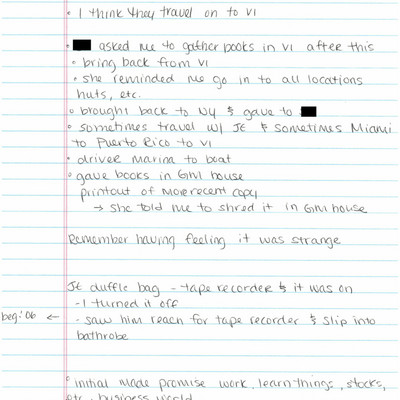 • I think they travel on to VI
• asked me to gather books in VI after this
• bring back from VI
• she reminded me go in to all locations
huts, etc.
• brought back to NY & gave to
• sometimes travel w/ JE & sometimes Miami
to Puerto Rico to VI
• driver marina to boat
• gave books in GM house
printout of more recent copy
→ she told me to shred it in GM house
Remember having feeling it was strange
JE duffle bag - tape recorder & it was on
- I turned it off
beg: '06 ← - saw him reach for tape recorder & slip into
bathrobe
• initial made promise work, learn things, stocks,
etc. business world